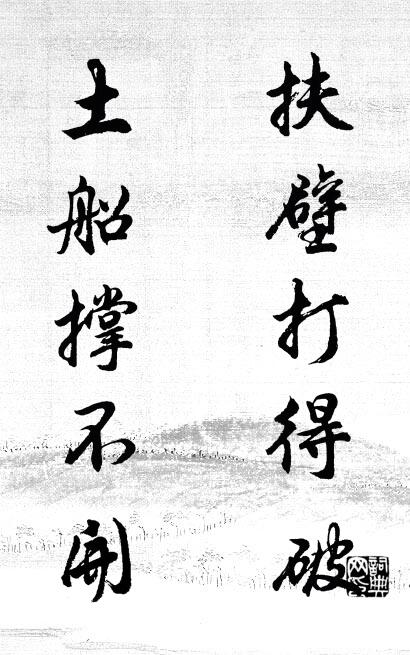 扶壁打得破
土船撑不開
詞典网